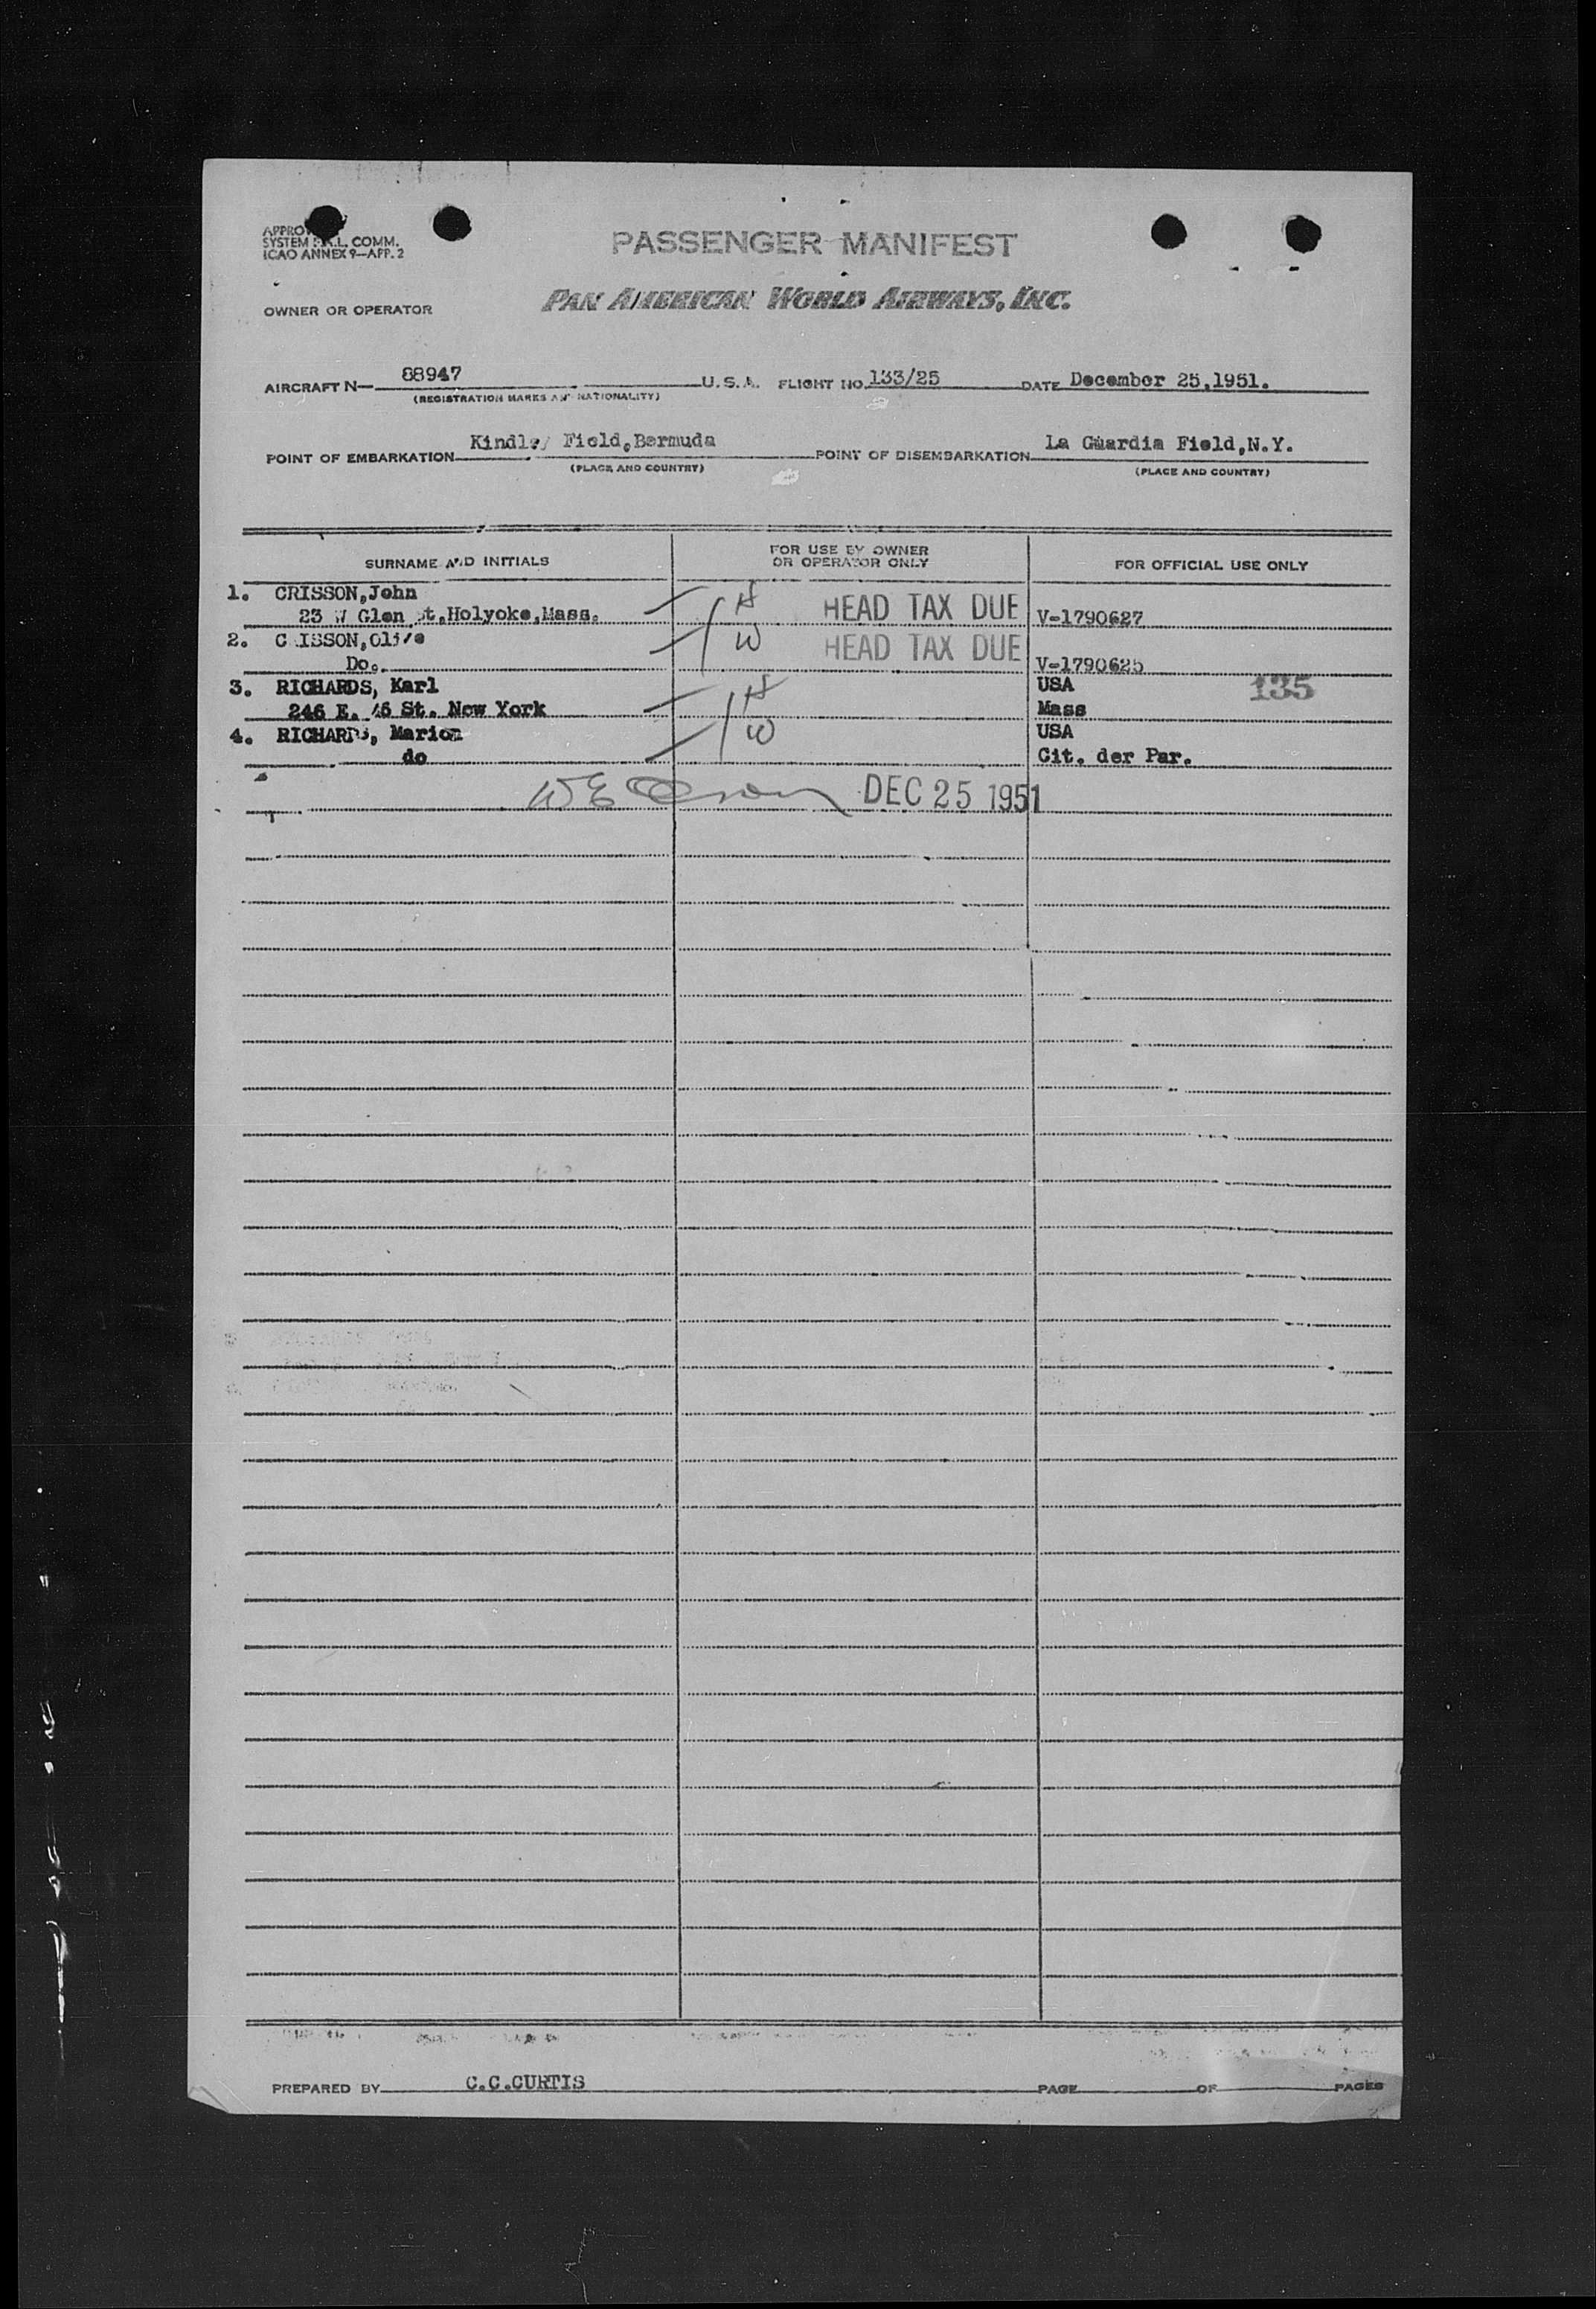 APPRO
SYSTEM F.A.L. COMM.
ICAO ANNEX 9—APP. 2
PASSENGER MANIFEST
OWNER OR OPERATOR PAN AMERICAN WORLD AIRWAYS, INC.
AIRCRAFT N— 88947 U. S. A. FLIGHT NO. 133/25 DATE December 25,1951.
(REGISTRATION MARKS AND NATIONALITY)
POINT OF EMBARKATION Kindley Field,Bermuda POINT OF DISEMBARKATION La Guardia Field,N.Y.
(PLACE AND COUNTRY) (PLACE AND COUNTRY)
SURNAME AND INITIALS FOR USE BY OWNER OR OPERATOR ONLY FOR OFFICIAL USE ONLY
1. CRISSON,John H HEAD TAX DUE
23 W Glen St.,Holyoke,Mass. V-1790627
2. CRISSON,Olive W HEAD TAX DUE
Do. V-1790625
3. RICHARDS, Karl H USA 135
246 E. 46 St. New York Mass
4. RICHARDS, Marion W USA
do Cit. der Par.
DEC 25 1951
PREPARED BY C.C.CURTIS PAGE OF PAGES